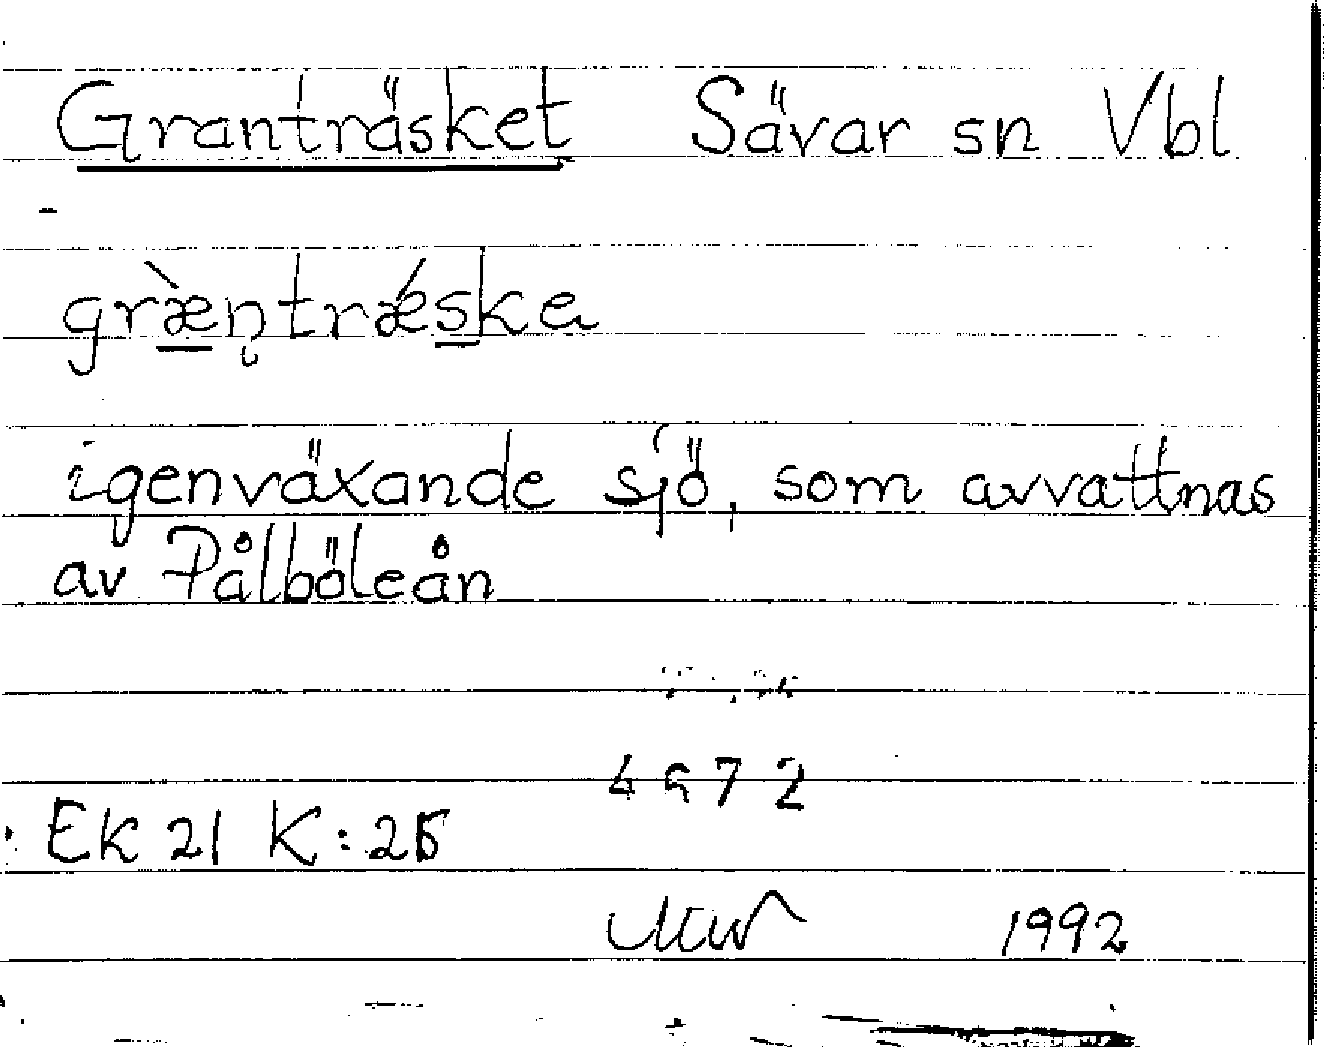 Granträsket Sävar sn Vbl
græ̀ntrǽska
igenväxande sjö, som avvattnas
av Pålböleån
4972
EK 21 K:
1992